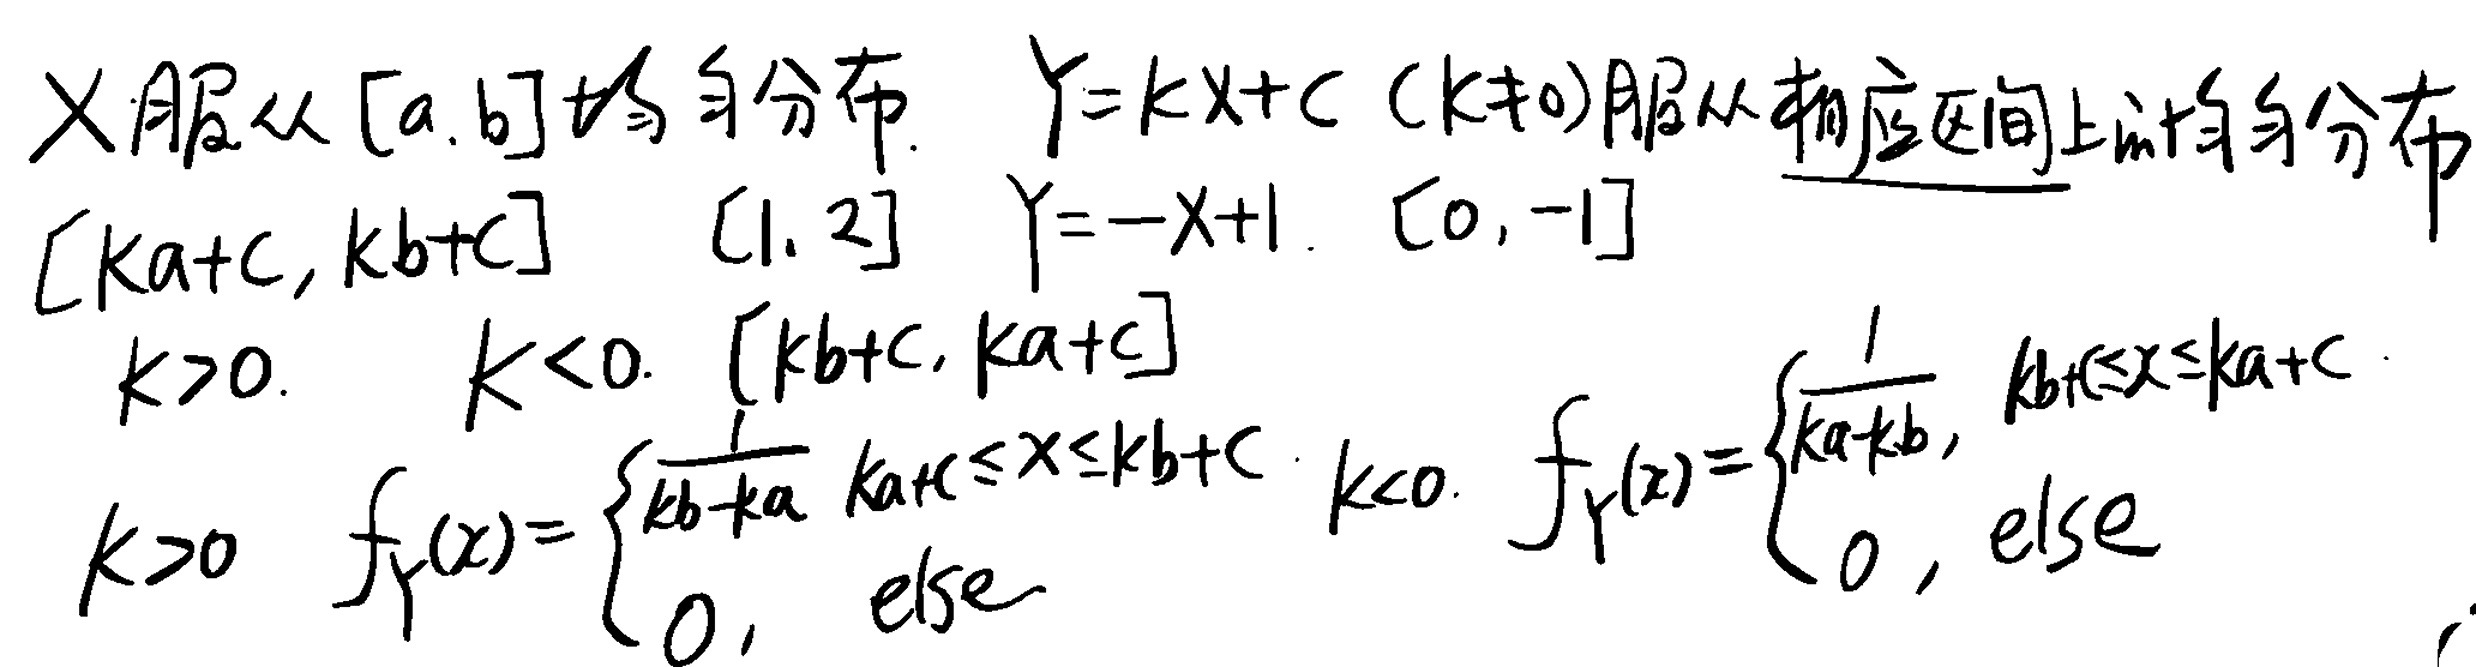 X服从[a.b]均匀分布. Y=kX+c (k≠0)服从相应区间上的均匀分布
[ka+c, kb+c] [1. 2] Y=-X+1. [0, -1]
k>0. k<0. [kb+c, ka+c]
k>0 f_Y(x)={1/(kb-ka) ka+c≤x≤kb+c. 0, else k<0. f_Y(x)={1/(ka-kb), kb+c≤x≤ka+c. 0, else